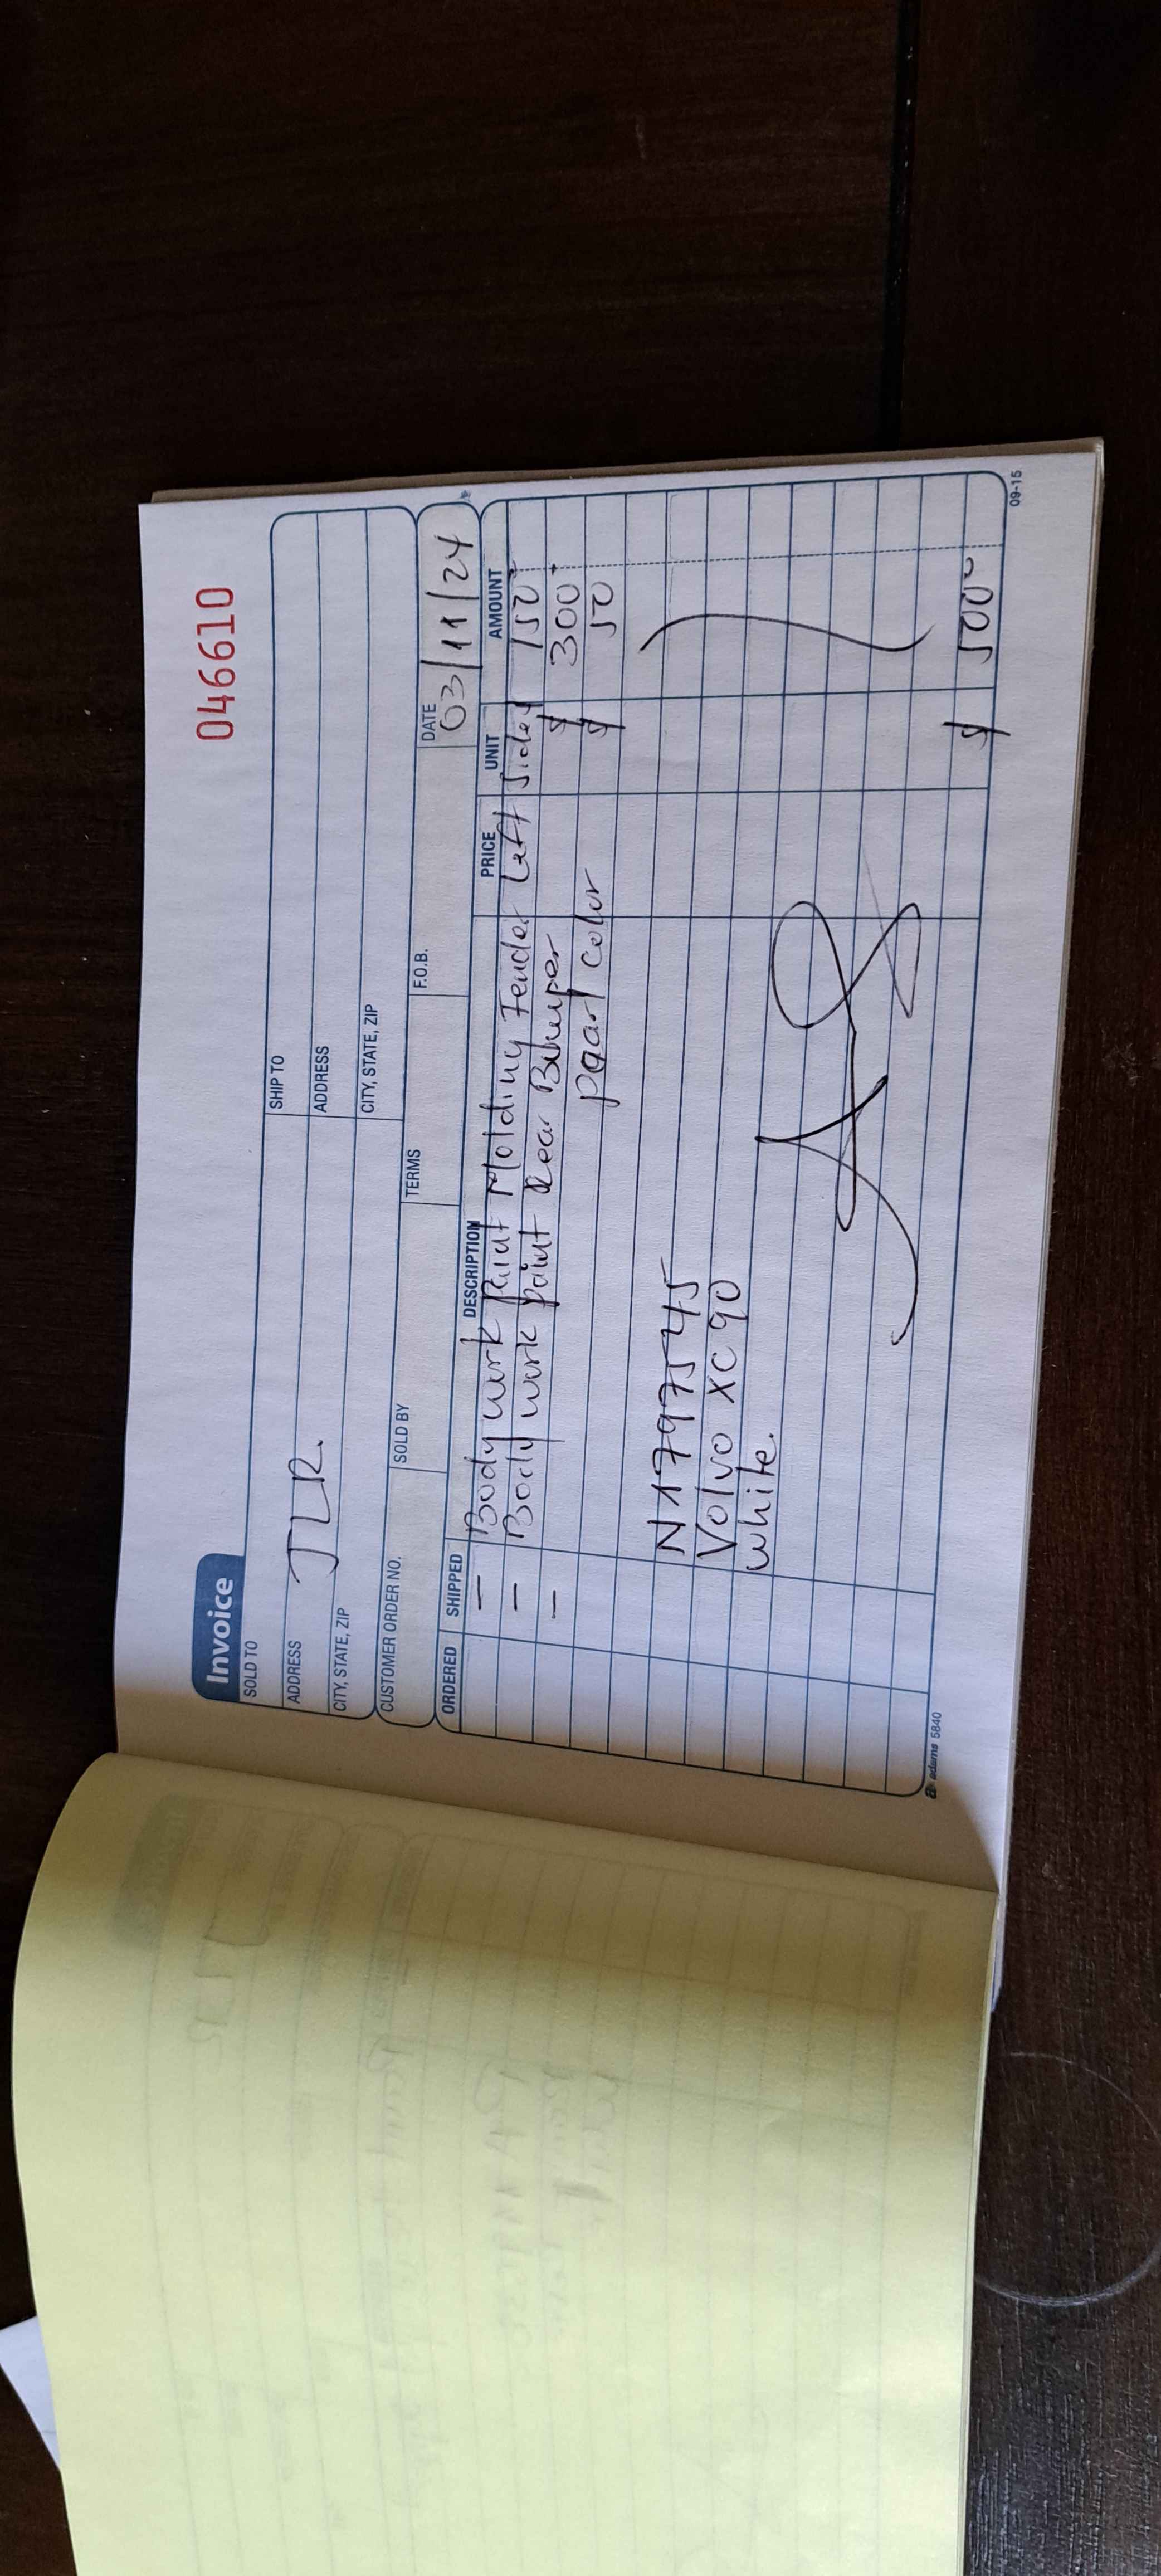 046610
Invoice
SOLD TO
SHIP TO
ADDRESS
JLR.
ADDRESS
CITY, STATE, ZIP
CITY, STATE, ZIP
CUSTOMER ORDER NO.
SOLD BY
TERMS
F.O.B.
DATE
03/11/24
ORDERED SHIPPED DESCRIPTION PRICE UNIT AMOUNT
- Body work Paint Molding Fender Left Side $ 150
- Body work paint Rear Bumper $ 300
- paarl color $ 50
N1797545
Volvo XC90
white.
$ 500
adams 5840
09-15